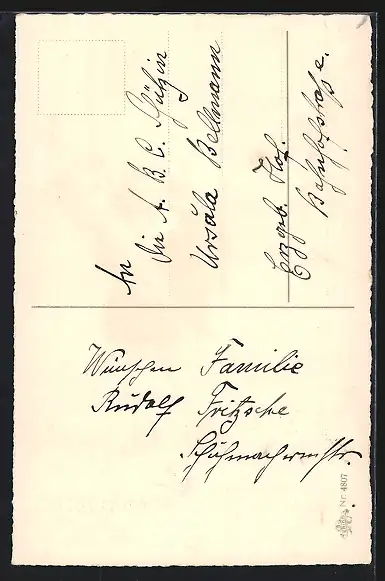 An
die A. B. C. Schützin
Ursula Bellmann
Erzgeb. Hof.
Bahnhofstraße.
Wünschen Familie
Rudolf Fritzsche
Schuhmachermstr.
Nr. 4807